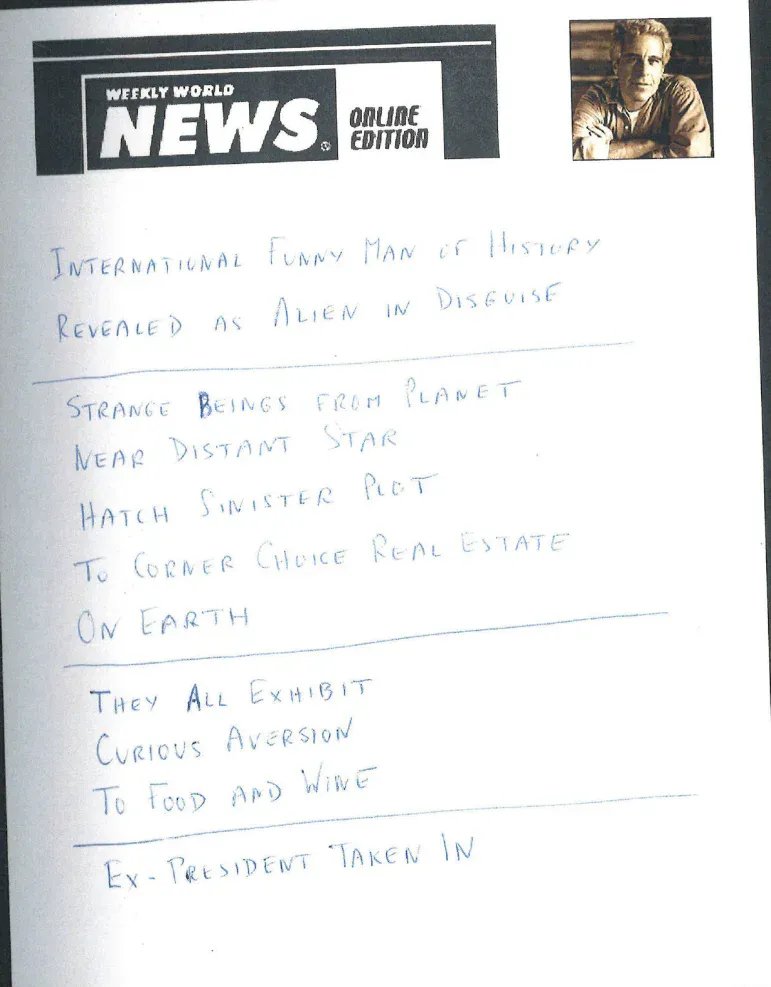 WEEKLY WORLD
NEWS®
ONLINE
EDITION
INTERNATIONAL FUNNY MAN OF HISTORY
REVEALED AS ALIEN IN DISGUISE
STRANGE BEINGS FROM PLANET
NEAR DISTANT STAR
HATCH SINISTER PLOT
TO CORNER CHOICE REAL ESTATE
ON EARTH
THEY ALL EXHIBIT
CURIOUS AVERSION
TO FOOD AND WINE
EX-PRESIDENT TAKEN IN